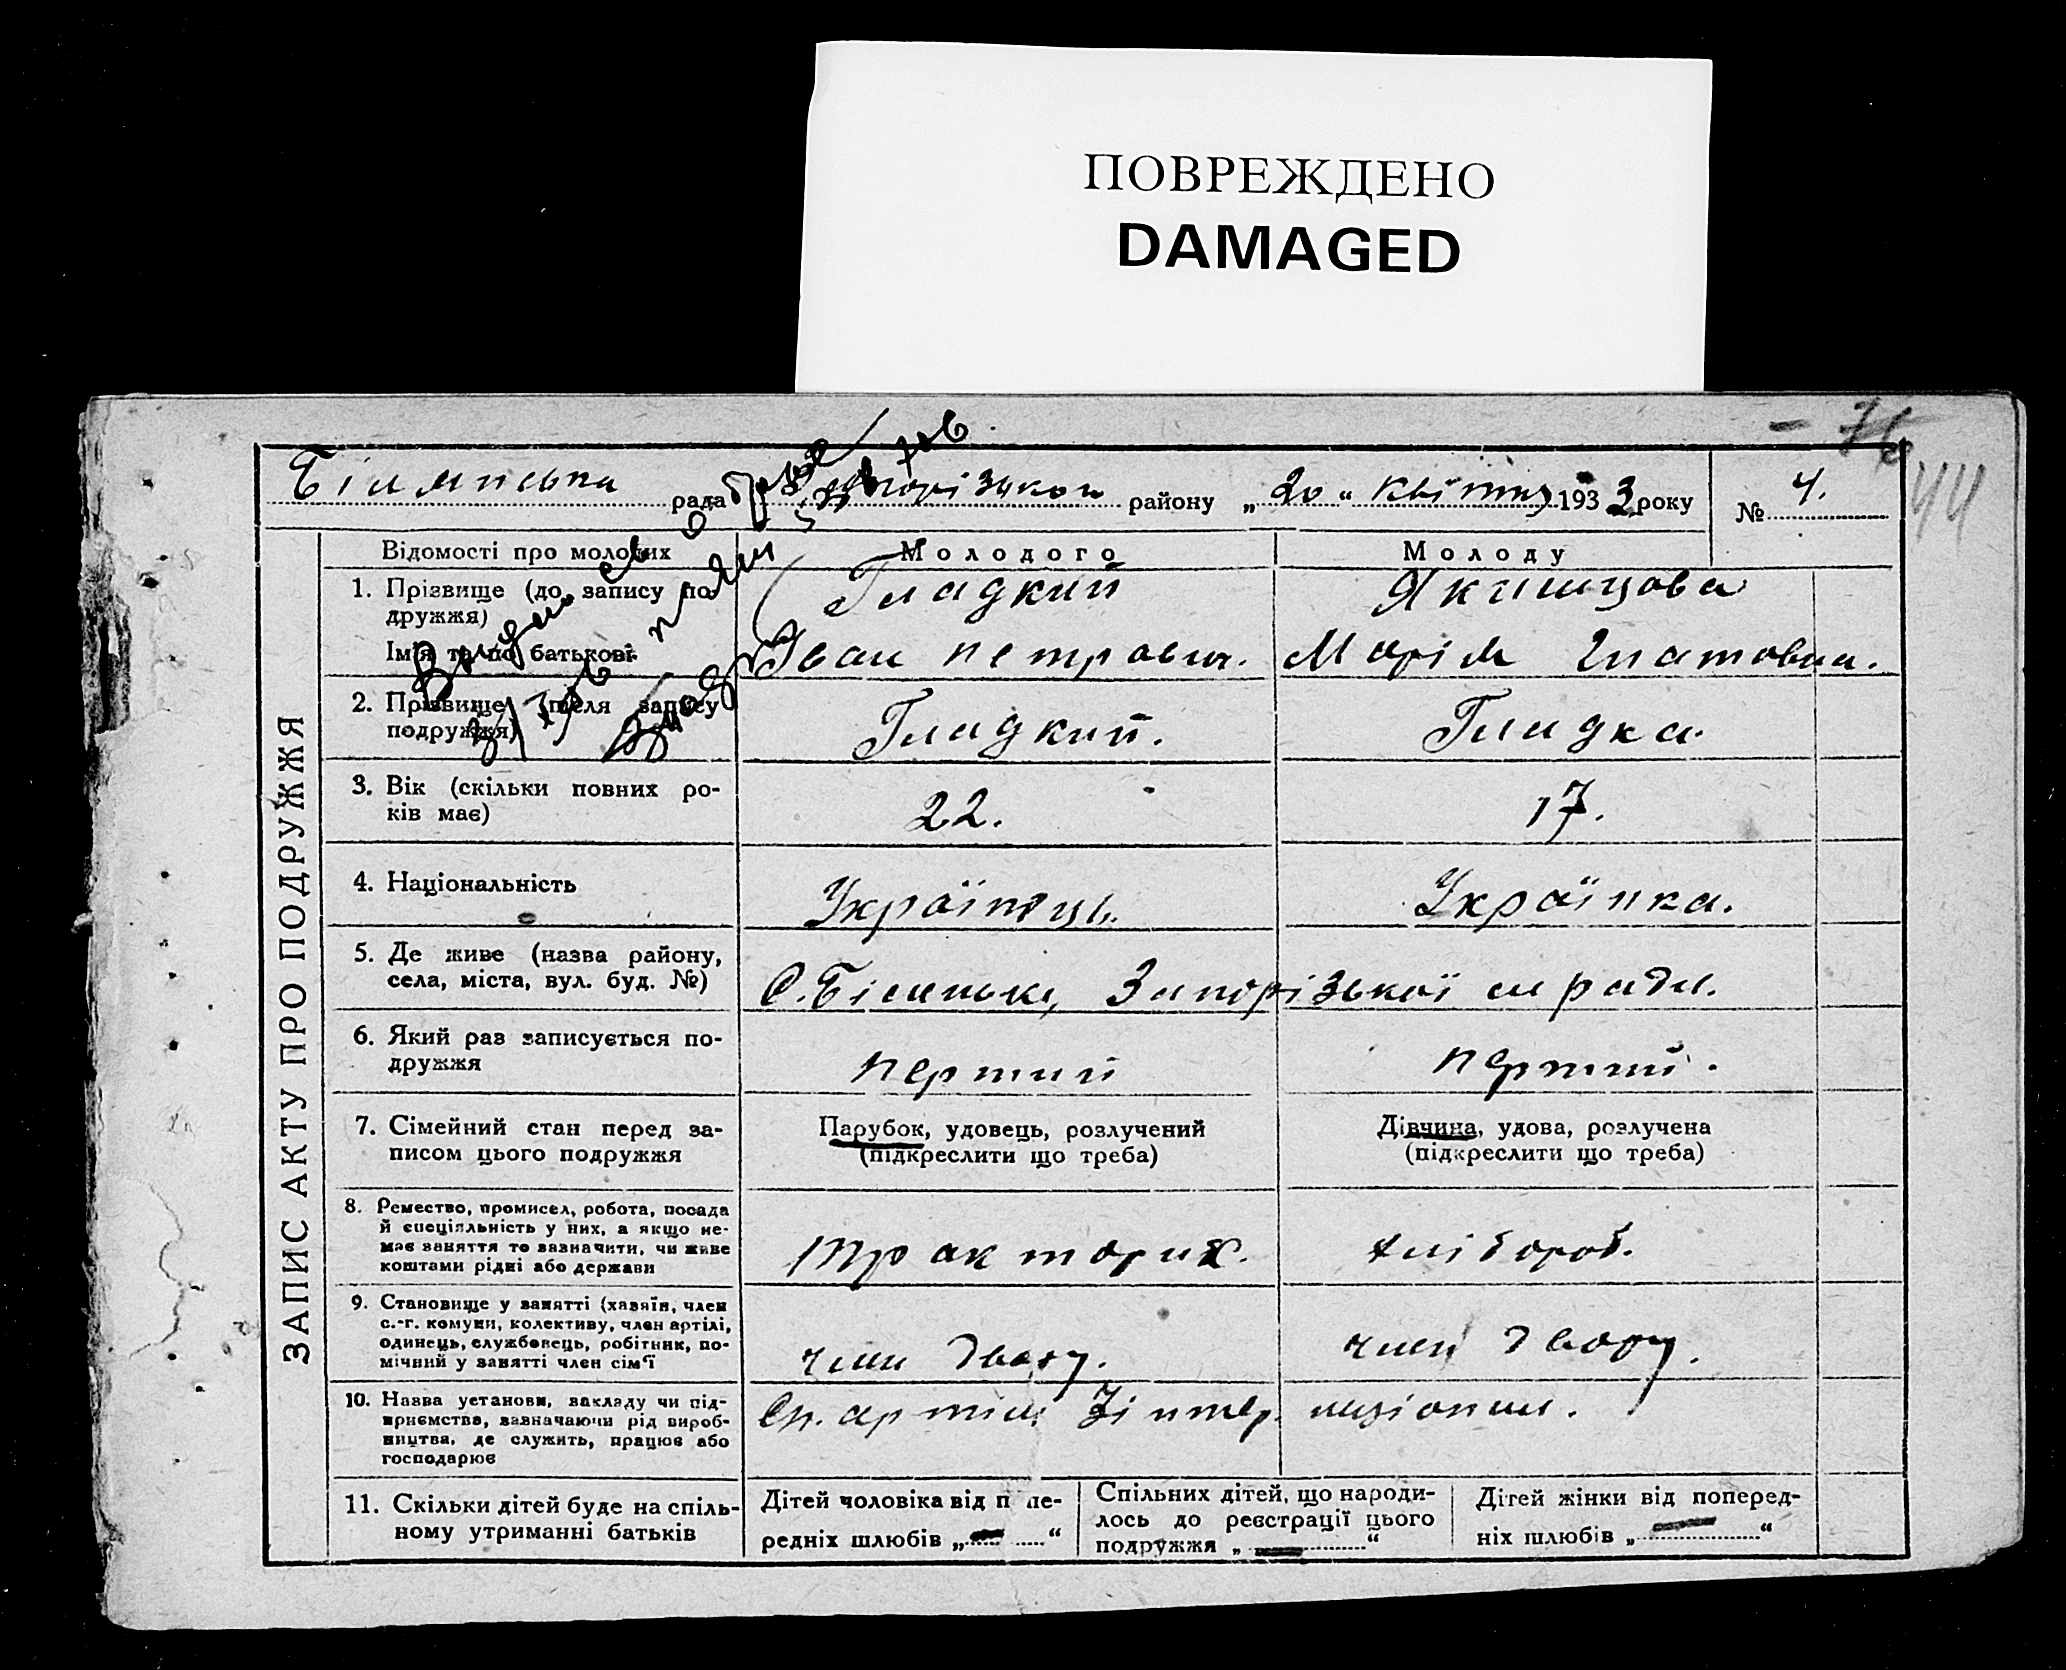 ПОВРЕЖДЕНО
DAMAGED
- 76
44
Біленська рада Запорізького району „ 20 “ квітня 1933 року № 4.
ЗАПИС АКТУ ПРО ПОДРУЖЖЯ
Відомості про молодих
Молодого
Молоду
1. Прізвище (до запису по-
дружжя)
Гладкий
Ім'я та по батькові
Іван Петрович.
Марія Гнатовна.
2. Прізвище (після запису
подружжя)
Гладкий.
Гладка.
3. Вік (скільки повних ро-
ків має)
22.
17.
4. Національність
Українець.
Українка.
5. Де живе (назва району,
села, міста, вул. буд. №)
С. Біленьке, Запорізької м ради.
6. Який раз записується по-
дружжя
перший
перший.
7. Сімейний стан перед за-
писом цього подружжя
Парубок, удовець, розлучений
(підкреслити що треба)
Дівчина, удова, розлучена
(підкреслити що треба)
8. Ремество, промисел, робота, посада
й спеціяльність у них, а якщо не-
має заняття то зазначити, чи живе
коштами рідні або держави
тракторист.
хлібороб.
9. Становище у занятті (хазяїн, член
с.-г. комуни, колективу, член артілі,
одинець, службовець, робітник, по-
мічний у занятті член сім'ї
член двору.
член двору.
10. Назва установи, закладу чи під-
приємства, зазначаючи рід вироб-
ництва, де служить, працює або
господарює
11. Скільки дітей буде на спіль-
ному утриманні батьків
Дітей чоловіка від попе-
редніх шлюбів „ — “
Спільних дітей, що народи-
лось до реєстрації цього
подружжя „ — “
Дітей жінки від поперед-
ніх шлюбів „ — “